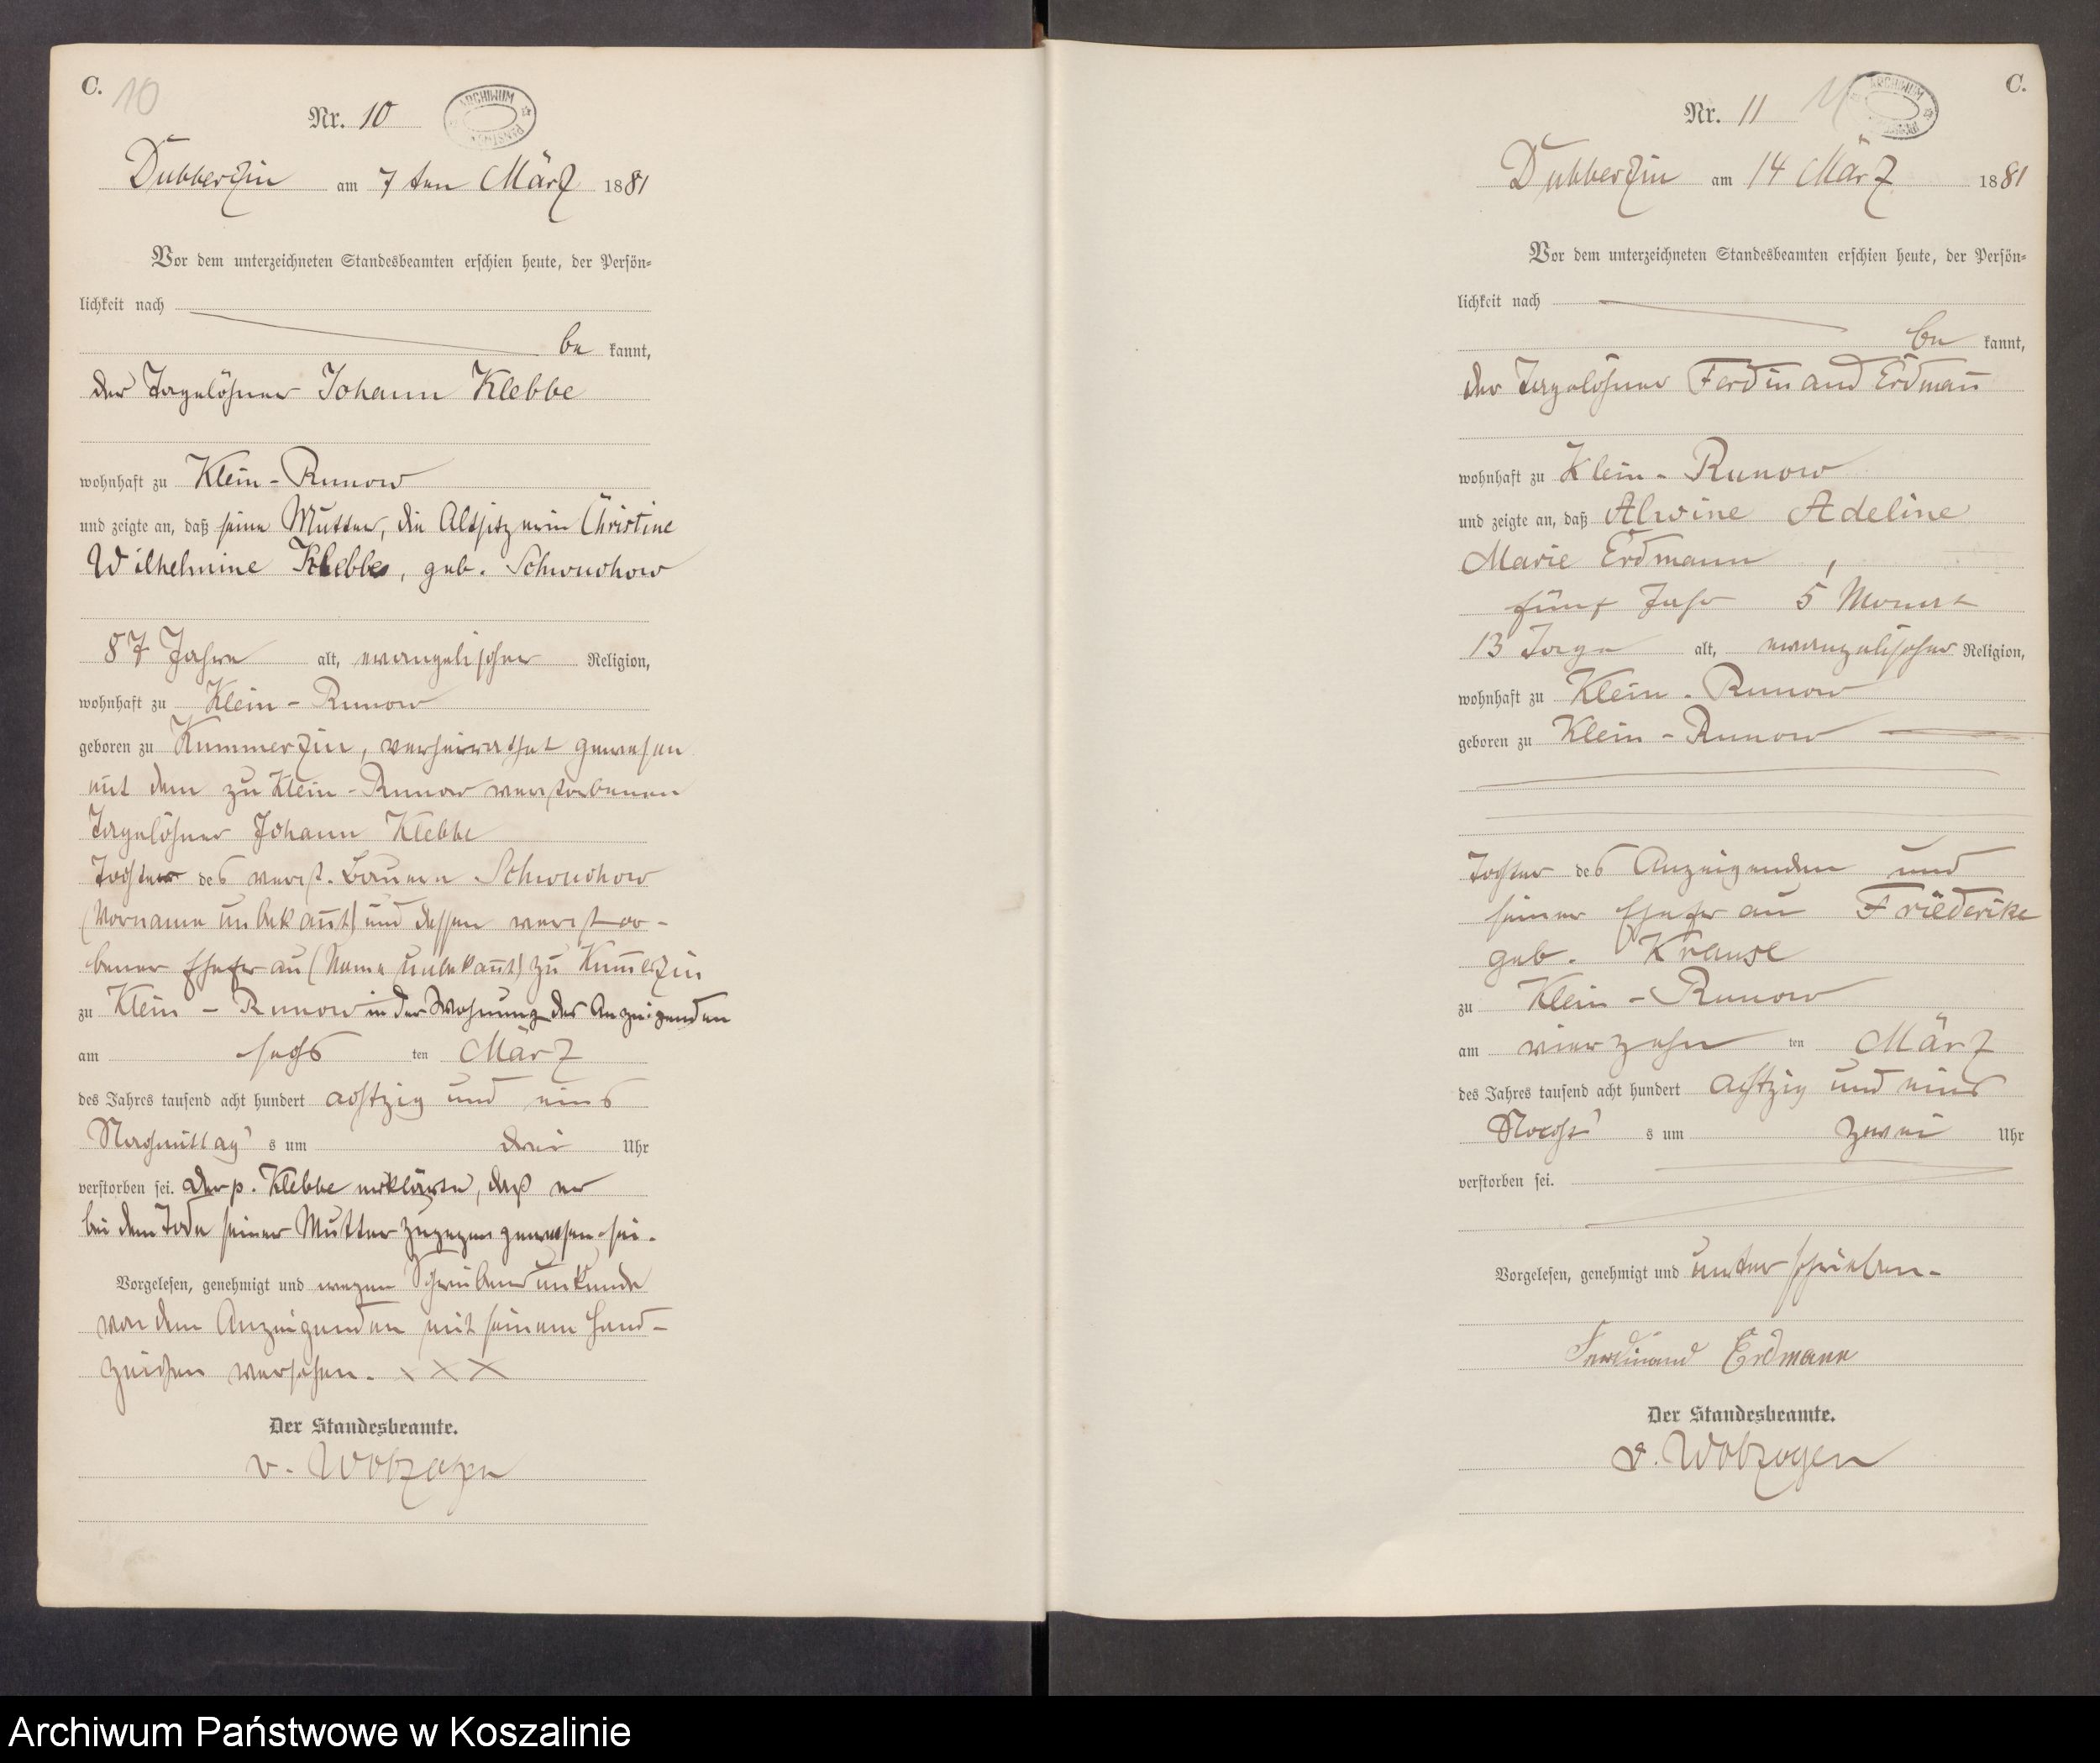 C. 10
Nr. 10
ARCHIWUM
Dubberzin am 7ten März 1881
Vor dem unterzeichneten Standesbeamten erschien heute, der Persön=
lichkeit nach
be kannt,
der Tagelöhner Johann Klebbe
wohnhaft zu Klein-Runow
und zeigte an, daß seine Mutter, die Altsitzerin Christine
Wilhelmine Klebbe, geb. Schwuchow
87 Jahre alt, evangelischer Religion,
wohnhaft zu Klein-Runow
geboren zu Kummerzin, verheirathet gewesen
mit dem zu Klein-Runow verstorbenen
Tagelöhner Johann Klebbe
Tochter des verst. Bauern Schwuchow
(Vorname unbekañt) und dessen verstor-
bener Ehefrau (Name unbekañt) zu Kum̃erzin
zu Klein-Runow in der Wohnung des Anzeigenden
am sechs ten März
des Jahres tausend acht hundert achtzig und eins
Nachmittag s um drei Uhr
verstorben sei. Der p. Klebbe erklärte, daß er
bei dem Tode seiner Mutter zugegen gewesen sei.
Vorgelesen, genehmigt und wegen Schreibensunkunde
von dem Anzeigenden mit seinem Hand-
zeichen versehen. XXX
Der Standesbeamte.
v. Wolzogen
C.
Nr. 11 11
ARCHIWUM
Dubberzin am 14 März 1881
Vor dem unterzeichneten Standesbeamten erschien heute, der Persön=
lichkeit nach
be kannt,
der Tagelöhner Ferdinand Erdmañ
wohnhaft zu Klein-Runow
und zeigte an, daß Alwine Adeline
Marie Erdmann,
fünf Jahr 5 Monat
13 Tage alt, evangelischer Religion,
wohnhaft zu Klein-Runow
geboren zu Klein-Runow
Tochter des Anzeigenden und
seiner Ehefrau Friederike
geb. Krause
zu Klein-Runow
am vierzehn ten März
des Jahres tausend acht hundert achtzig und eins
Nacht s um zwei Uhr
verstorben sei.
Vorgelesen, genehmigt und unterschrieben.
Ferdinand Erdmann
Der Standesbeamte.
v. Wolzogen
Archiwum Państwowe w Koszalinie